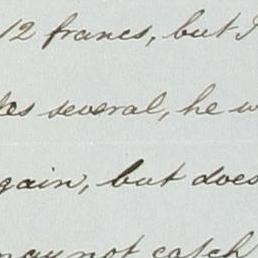 12 francs, but I
several, he
gain, but does
may not catch